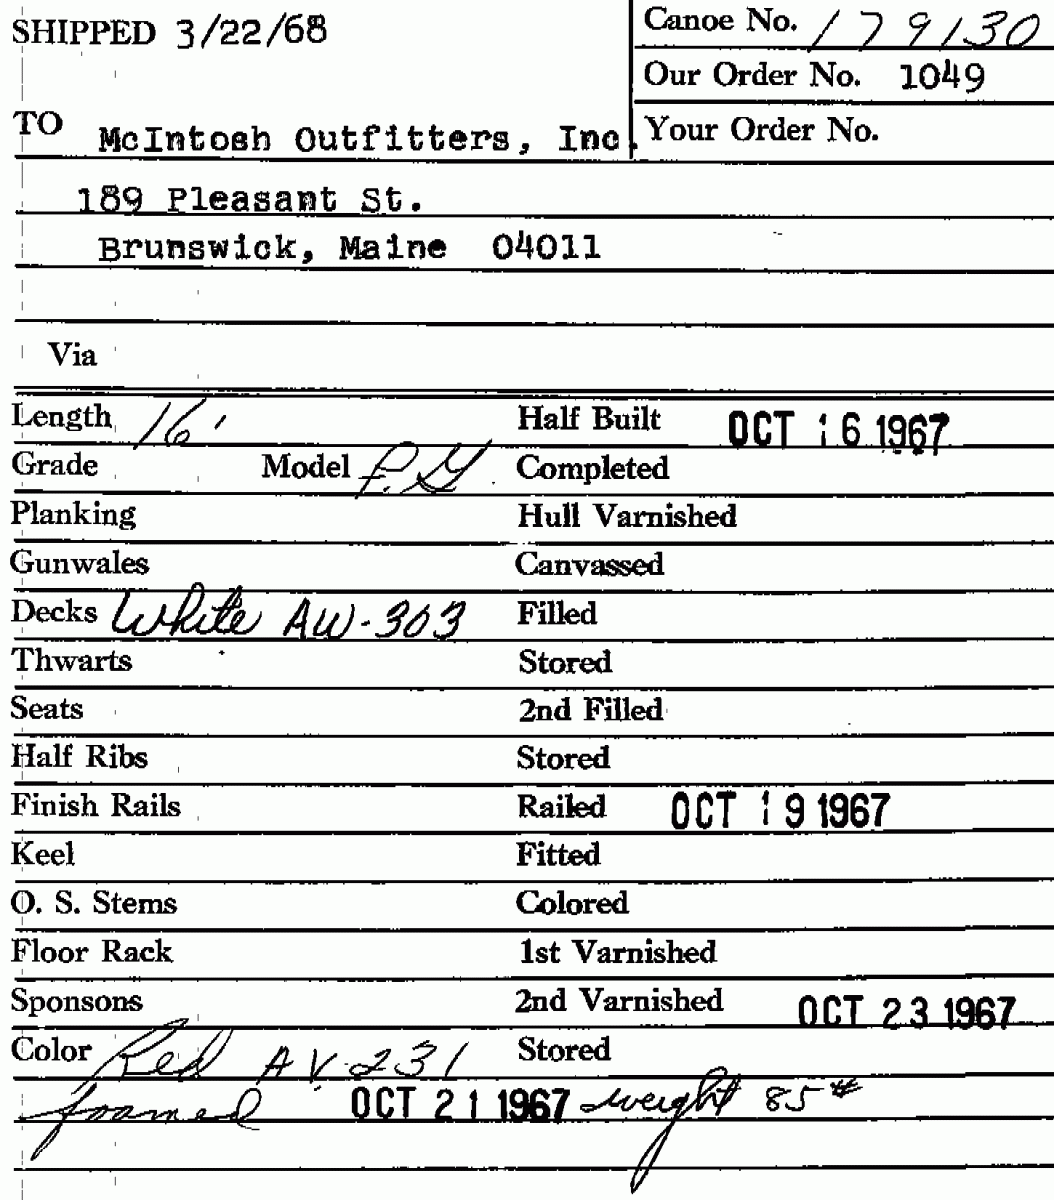 SHIPPED 3/22/68
Canoe No. 179130
Our Order No. 1049
TO McIntosh Outfitters, Inc.
Your Order No.
189 Pleasant St.
Brunswick, Maine 04011
Via
Length 16' Half Built OCT 16 1967
Grade Model F.G. Completed
Planking Hull Varnished
Gunwales Canvassed
Decks White AW-303 Filled
Thwarts Stored
Seats 2nd Filled
Half Ribs Stored
Finish Rails Railed OCT 19 1967
Keel Fitted
O. S. Stems Colored
Floor Rack 1st Varnished
Sponsons 2nd Varnished OCT 23 1967
Color Red AV-231 Stored
foamed OCT 21 1967 weight 85#